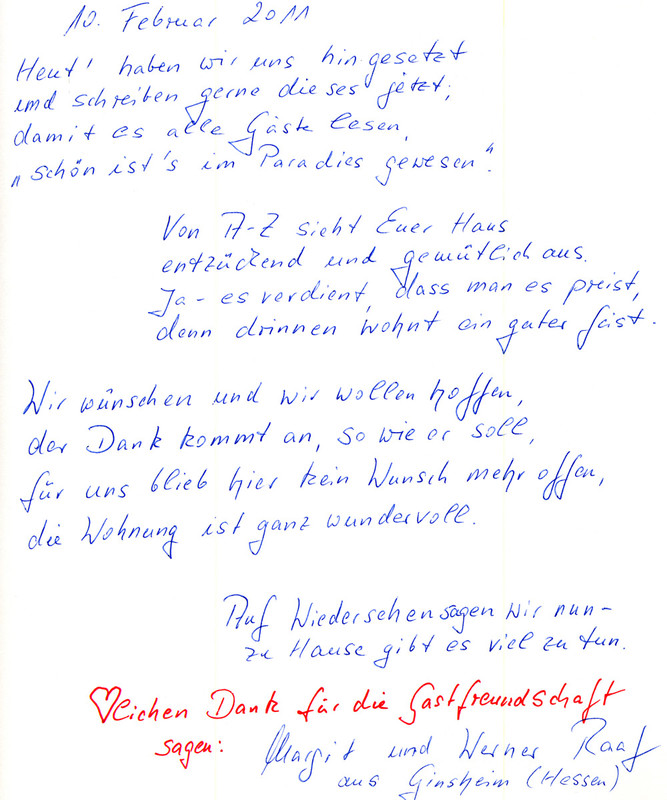 10. Februar 2011
Heut' haben wir uns hingesetzt
und schreiben gerne dieses jetzt;
damit es alle Gäste lesen,
„schön ist's im Paradies gewesen".
Von A-Z sieht Euer Haus
entzückend und gemütlich aus.
Ja - es verdient, dass man es preist,
denn drinnen wohnt ein guter Geist.
Wir wünschen und wir wollen hoffen,
der Dank kommt an, so wie er soll,
für uns blieb hier kein Wunsch mehr offen,
die Wohnung ist ganz wundervoll.
Auf Wiedersehen sagen wir nun-
zu Hause gibt es viel zu tun.
♡lichen Dank für die Gastfreundschaft
sagen: Margit und Werner Raaf
aus Ginsheim (Hessen)